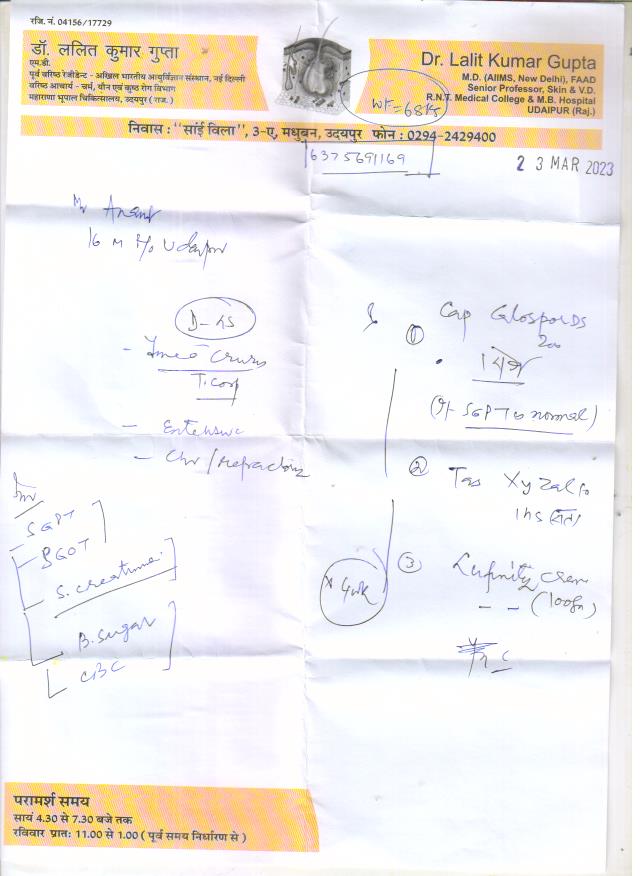 रजि. नं. 04156/17729
डॉ. ललित कुमार गुप्ता
एम.डी.
पूर्व वरिष्ठ रेजीडेन्ट - अखिल भारतीय आयुर्विज्ञान संस्थान, नई दिल्ली
वरिष्ठ आचार्य - चर्म, यौन एवं कुष्ठ रोग विभाग
महाराणा भूपाल चिकित्सालय, उदयपुर ( राज. )
Dr. Lalit Kumar Gupta
M.D. (AIIMS, New Delhi), FAAD
Senior Professor, Skin & V.D.
R.N.T. Medical College & M.B. Hospital
UDAIPUR (Raj.)
निवास : "सांई विला", 3-ए, मधुबन, उदयपुर फोन : 0294-2429400
6375691169
2 3 MAR 2023
Mr Anand
16 M R/o Udaipur
Cruris
T. Corp
- Extensive
SGPT
SGOT
S. creatinine
B. Sugar
CBC
① Cap
200
(If SGPT is normal)
② Tab Xyzal
1 hs (रात)
③ cream
(100gm)
x 4wk
परामर्श समय
सायं 4.30 से 7.30 बजे तक
रविवार प्रातः 11.00 से 1.00 ( पूर्व समय निर्धारण से )